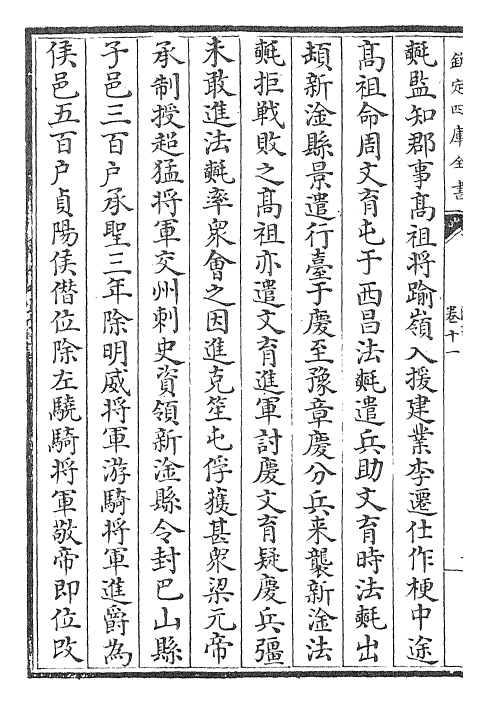 欽定四庫全書
卷十一
𣰋監知郡事髙祖將踰嶺入援建業李遷仕作梗中途
髙祖命周文育屯于西昌法𣰋遣兵助文育時法𣰋出
頓新淦縣景遣行臺于慶至豫章慶分兵来襲新淦法
𣰋拒戰敗之髙祖亦遣文育進軍討慶文育疑慶兵彊
未敢進法𣰋率衆會之因進克笙屯俘獲甚衆梁元帝
承制授超猛将軍交州刺史資領新淦縣令封巴山縣
子邑三百户承聖三年除明威将軍游騎將軍進爵為
侯邑五百户貞陽侯僣位除左驍騎將軍敬帝即位改